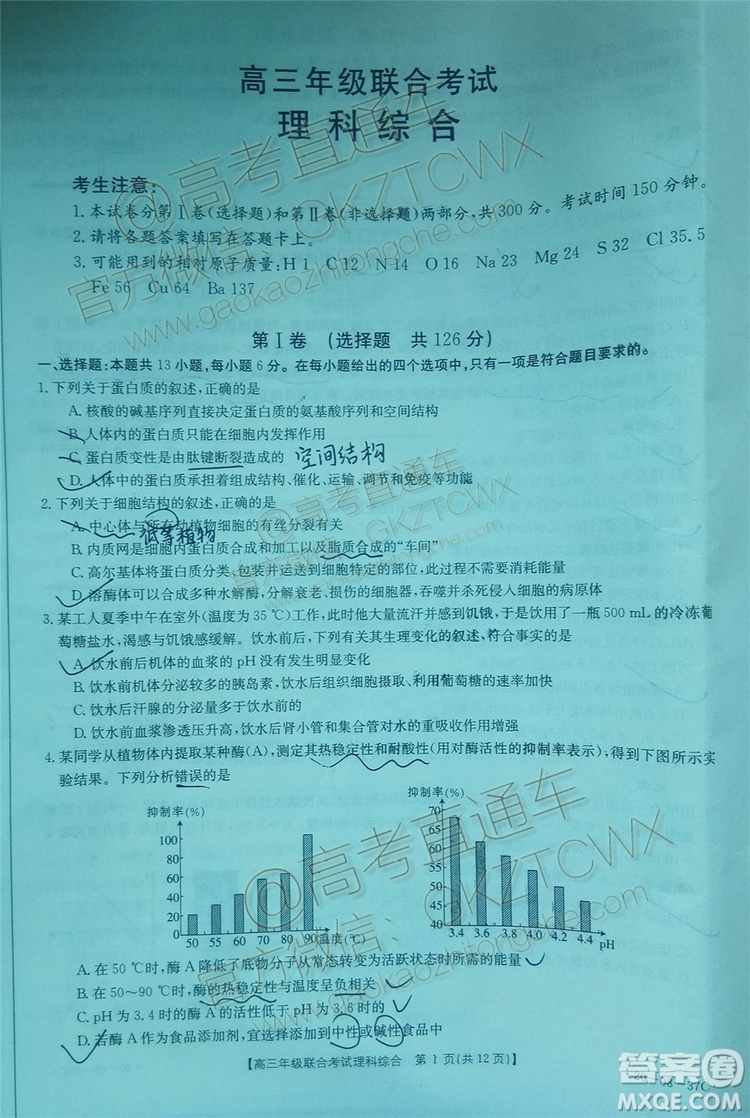 高三年级联合考试
理科综合
考生注意:
1.本试卷分第Ⅰ卷(选择题)和第Ⅱ卷(非选择题)两部分,共300分。考试时间150分钟。
2.请将各题答案填写在答题卡上。
3.可能用到的相对原子质量:H 1 C 12 N 14 O 16 Na 23 Mg 24 S 32 Cl 35.5
Fe 56 Cu 64 Ba 137
第Ⅰ卷 (选择题 共126分)
一、选择题:本题共13小题,每小题6分。在每小题给出的四个选项中,只有一项是符合题目要求的。
1.下列关于蛋白质的叙述,正确的是
A.核酸的碱基序列直接决定蛋白质的氨基酸序列和空间结构
B.人体内的蛋白质只能在细胞内发挥作用
C.蛋白质变性是由肽键断裂造成的 空间结构
D.人体内的蛋白质承担着组成结构、催化、运输、调节和免疫等功能
2.下列关于细胞结构的叙述,正确的是
A.中心体与所有动植物细胞的有丝分裂有关
低等植物
B.内质网是细胞内蛋白质合成和加工以及脂质合成的“车间”
C.高尔基体将蛋白质分类、包装并运送到细胞特定的部位,此过程不需要消耗能量
D.溶酶体可以合成多种水解酶,分解衰老、损伤的细胞器,吞噬并杀死侵入细胞的病原体
3.某工人夏季中午在室外(温度为35 ℃)工作,此时他大量流汗并感到饥饿,于是饮用了一瓶500 mL的冷冻葡
萄糖盐水,渴感与饥饿感缓解。饮水前后,下列有关其生理变化的叙述,符合事实的是
A.饮水前后机体的血浆的pH没有发生明显变化
B.饮水前机体分泌较多的胰岛素,饮水后组织细胞摄取、利用葡萄糖的速率加快
C.饮水后汗腺的分泌量多于饮水前的分泌量
D.饮水前血浆渗透压升高,饮水后肾小管和集合管对水的重吸收作用增强
4.某同学从植物体内提取某种酶(A),测定其热稳定性和耐酸性(用对酶活性的抑制率表示),得到下图所示实
验结果。下列分析错误的是
抑制率(%)
100
80
60
40
20
0
50 55 60 70 80 90 温度(℃)
抑制率(%)
70
65
60
55
50
45
40
3.4 3.6 3.8 4.0 4.2 4.4 pH
A.在50 ℃时,酶A降低了底物分子从常态转变为活跃状态时所需的能量
B.在50~90 ℃时,酶的热稳定性与温度呈负相关
C.pH为3.4时的酶A的活性低于pH为3.6时的
D.若酶A作为食品添加剂,宜选择添加到中性或碱性食品中
【高三年级联合考试理科综合 第1页(共12页)】
@高考直通车
官方微信:GKZTCWX
www.gaokaozhitongche.com
@高考直通车
官方微信:GKZTCWX
www.gaokaozhitongche.com
答案圈
MXQE.COM